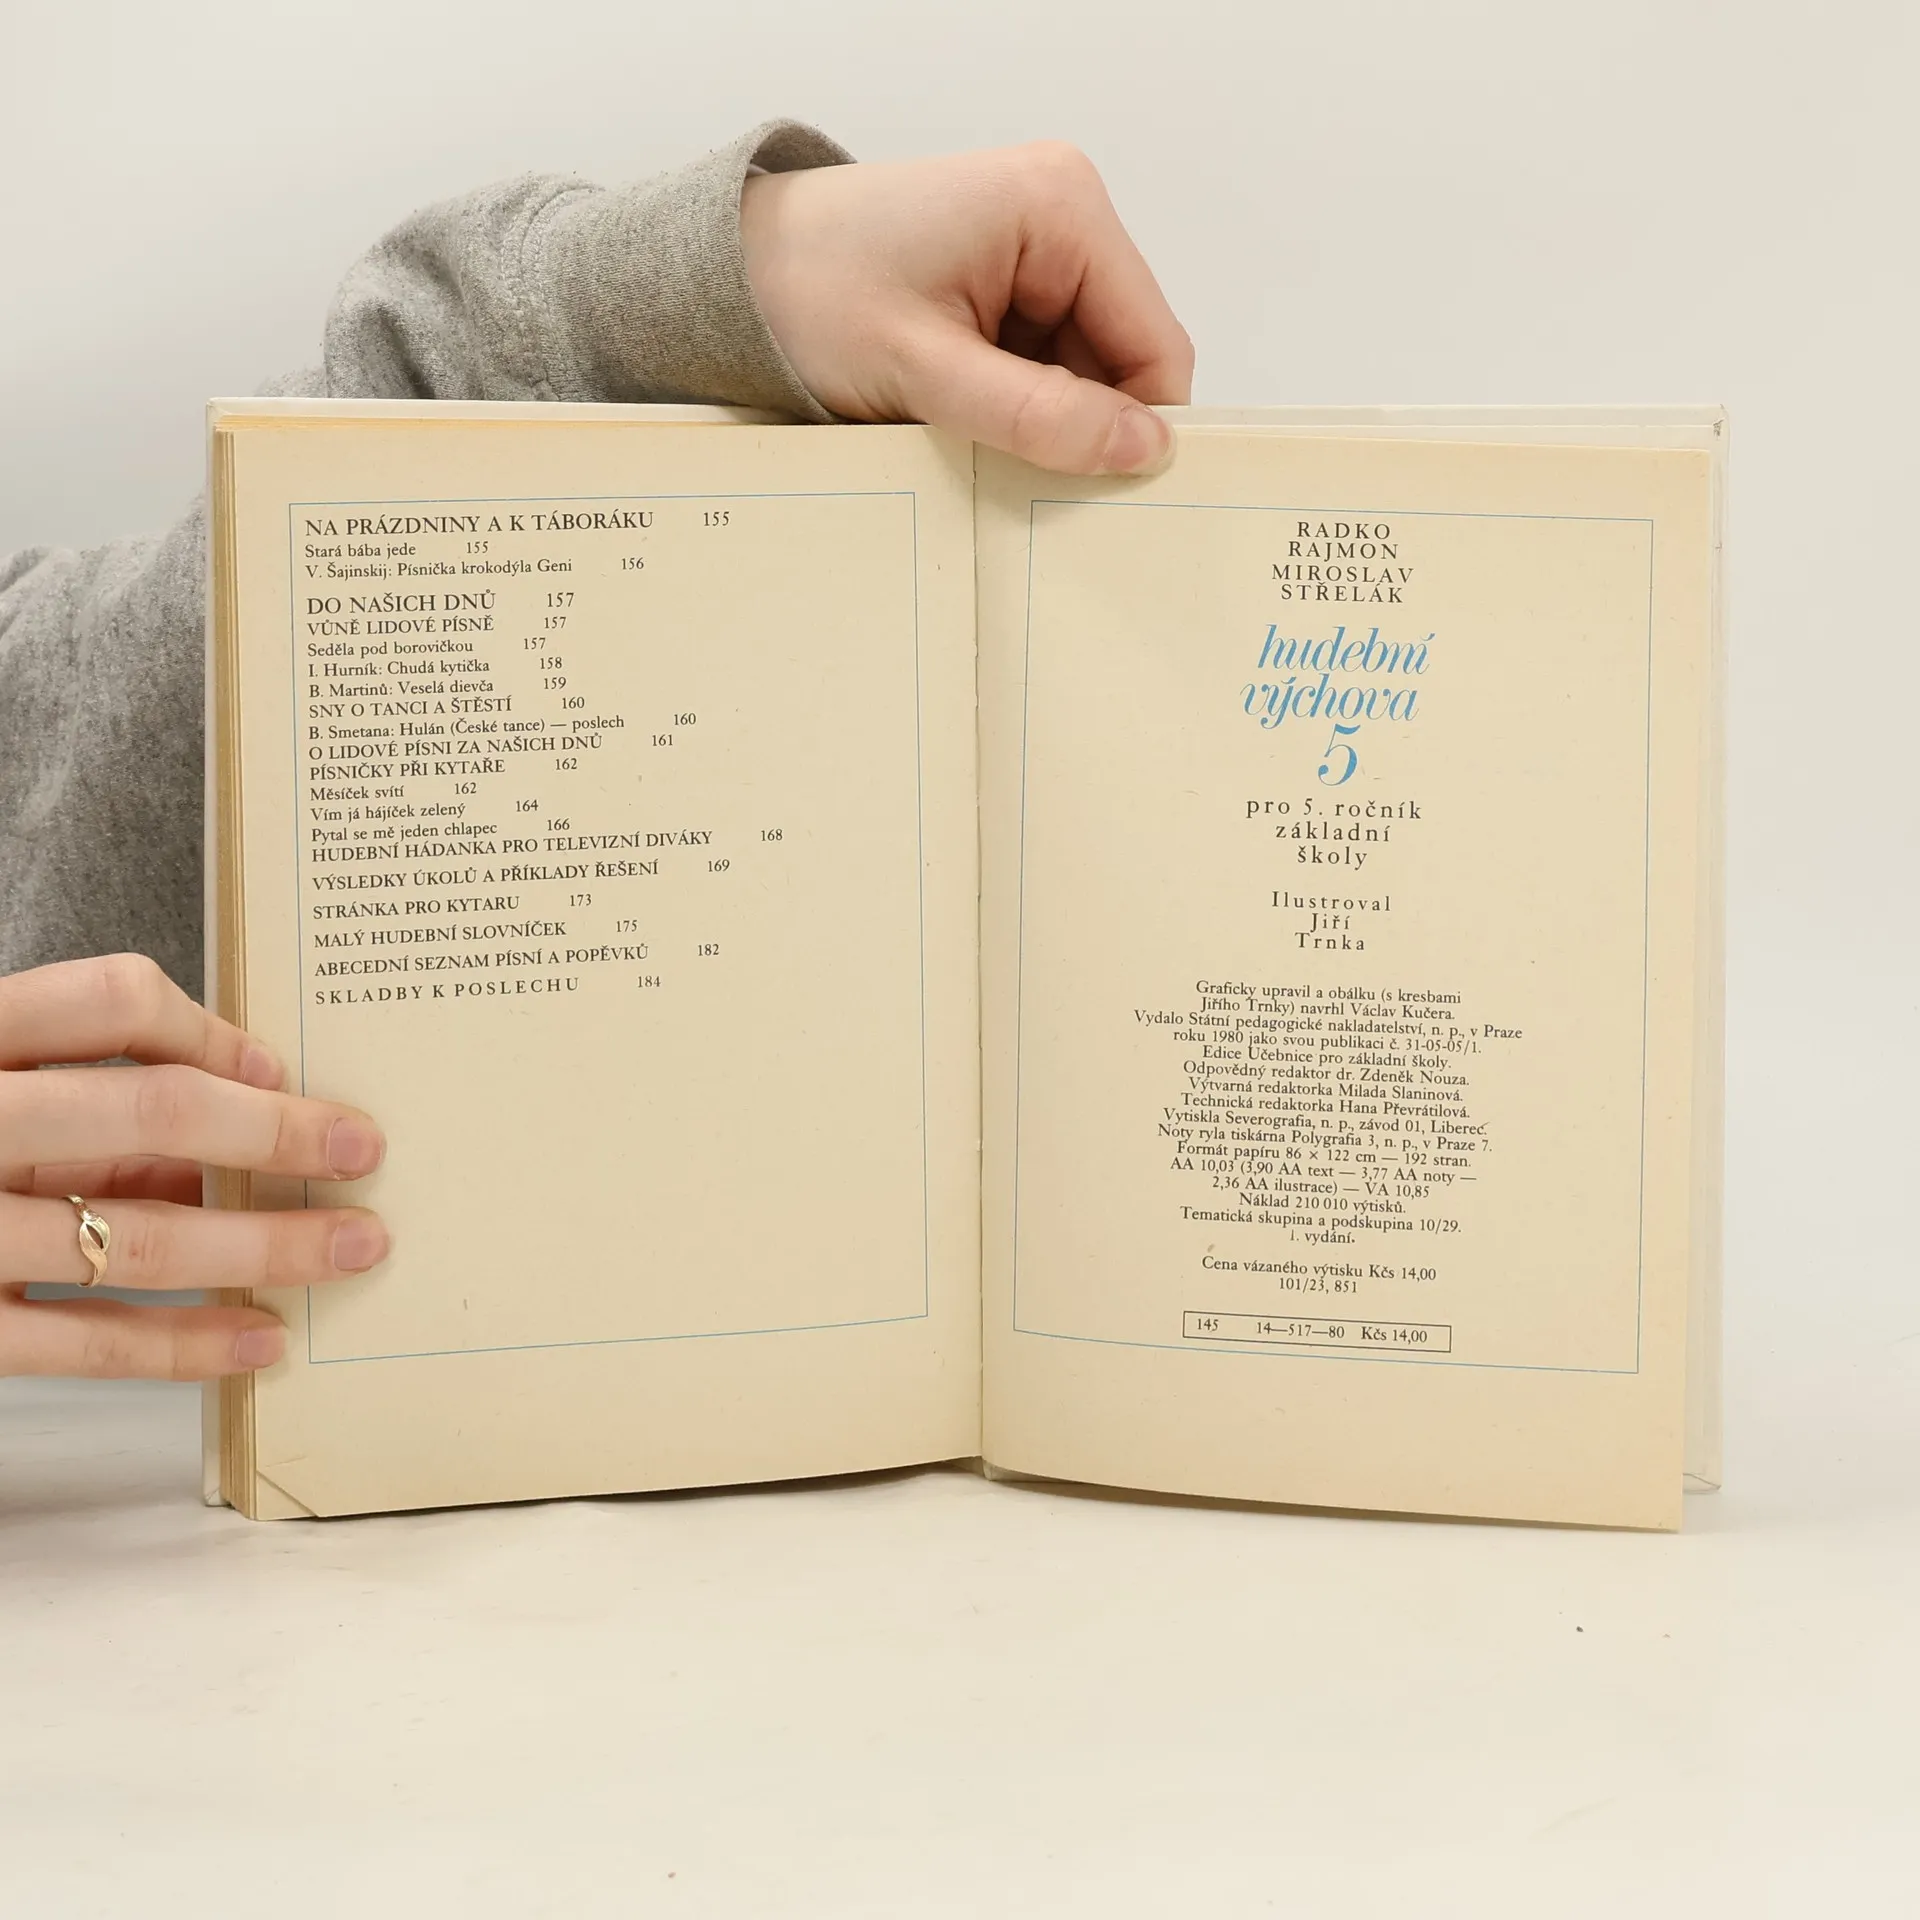 NA PRÁZDNINY A K TÁBORÁKU 155
Stará bába jede 155
V. Šajinskij: Písnička krokodýla Geni 156
DO NAŠICH DNŮ 157
VŮNĚ LIDOVÉ PÍSNĚ 157
Seděla pod borovičkou 157
I. Hurník: Chudá kytička 158
B. Martinů: Veselá dievča 159
SNY O TANCI A ŠTĚSTÍ 160
B. Smetana: Hulán (České tance) — poslech 160
O LIDOVÉ PÍSNI ZA NAŠICH DNŮ 161
PÍSNIČKY PŘI KYTAŘE 162
Měsíček svítí 162
Vím já hájíček zelený 164
Pytal se mě jeden chlapec 166
HUDEBNÍ HÁDANKA PRO TELEVIZNÍ DIVÁKY 168
VÝSLEDKY ÚKOLŮ A PŘÍKLADY ŘEŠENÍ 169
STRÁNKA PRO KYTARU 173
MALÝ HUDEBNÍ SLOVNÍČEK 175
ABECEDNÍ SEZNAM PÍSNÍ A POPĚVKŮ 182
SKLADBY K POSLECHU 184
RADKO
RAJMON
MIROSLAV
STŘELÁK
hudební
výchova
5
pro 5. ročník
základní
školy
Ilustroval
Jiří
Trnka
Graficky upravil a obálku (s kresbami
Jiřího Trnky) navrhl Václav Kučera.
Vydalo Státní pedagogické nakladatelství, n. p., v Praze
roku 1980 jako svou publikaci č. 31-05-05/1.
Edice Učebnice pro základní školy.
Odpovědný redaktor dr. Zdeněk Nouza.
Výtvarná redaktorka Milada Slaninová.
Technická redaktorka Hana Převrátilová.
Vytiskla Severografia, n. p., závod 01, Liberec.
Noty ryla tiskárna Polygrafia 3, n. p., v Praze 7.
Formát papíru 86 × 122 cm — 192 stran.
AA 10,03 (3,90 AA text — 3,77 AA noty —
2,36 AA ilustrace) — VA 10,85
Náklad 210 010 výtisků.
Tematická skupina a podskupina 10/29.
1. vydání.
Cena vázaného výtisku Kčs 14,00
101/23, 851
145 14—517—80 Kčs 14,00